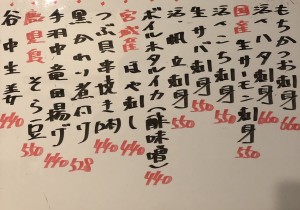 もちかつお刺身 660
活〆ハタ刺身 660
国産生サーモン刺身 550
活〆こち刺身 660
生サバ刺身 550
活帆立刺身 550
ボイルホタルイカ(酢味噌) 440
宮城産ほや刺し 440
つぶ貝串焼き(肉) 440
里かわり煮付け 528
手羽中竜田揚げ 440
鹿児島そら豆 550
谷中生姜 440